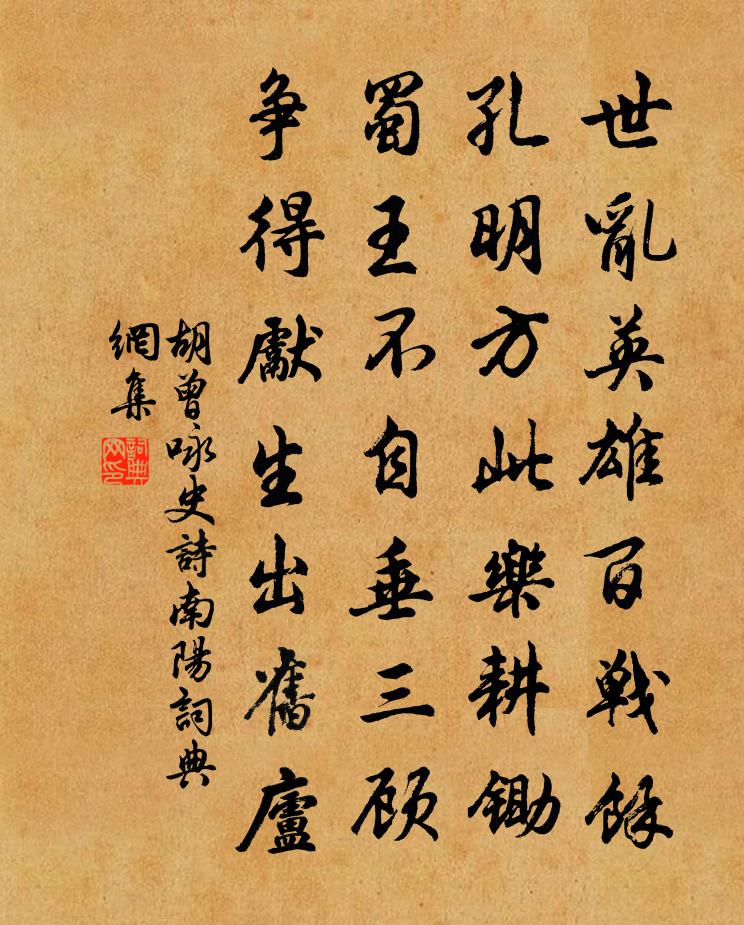 世亂英雄百戦餘
孔明方此樂耕鋤
蜀王不自垂三顾
争得獻生出舊廬
胡曾咏史詩南陽詞典
網集
詞典
网印